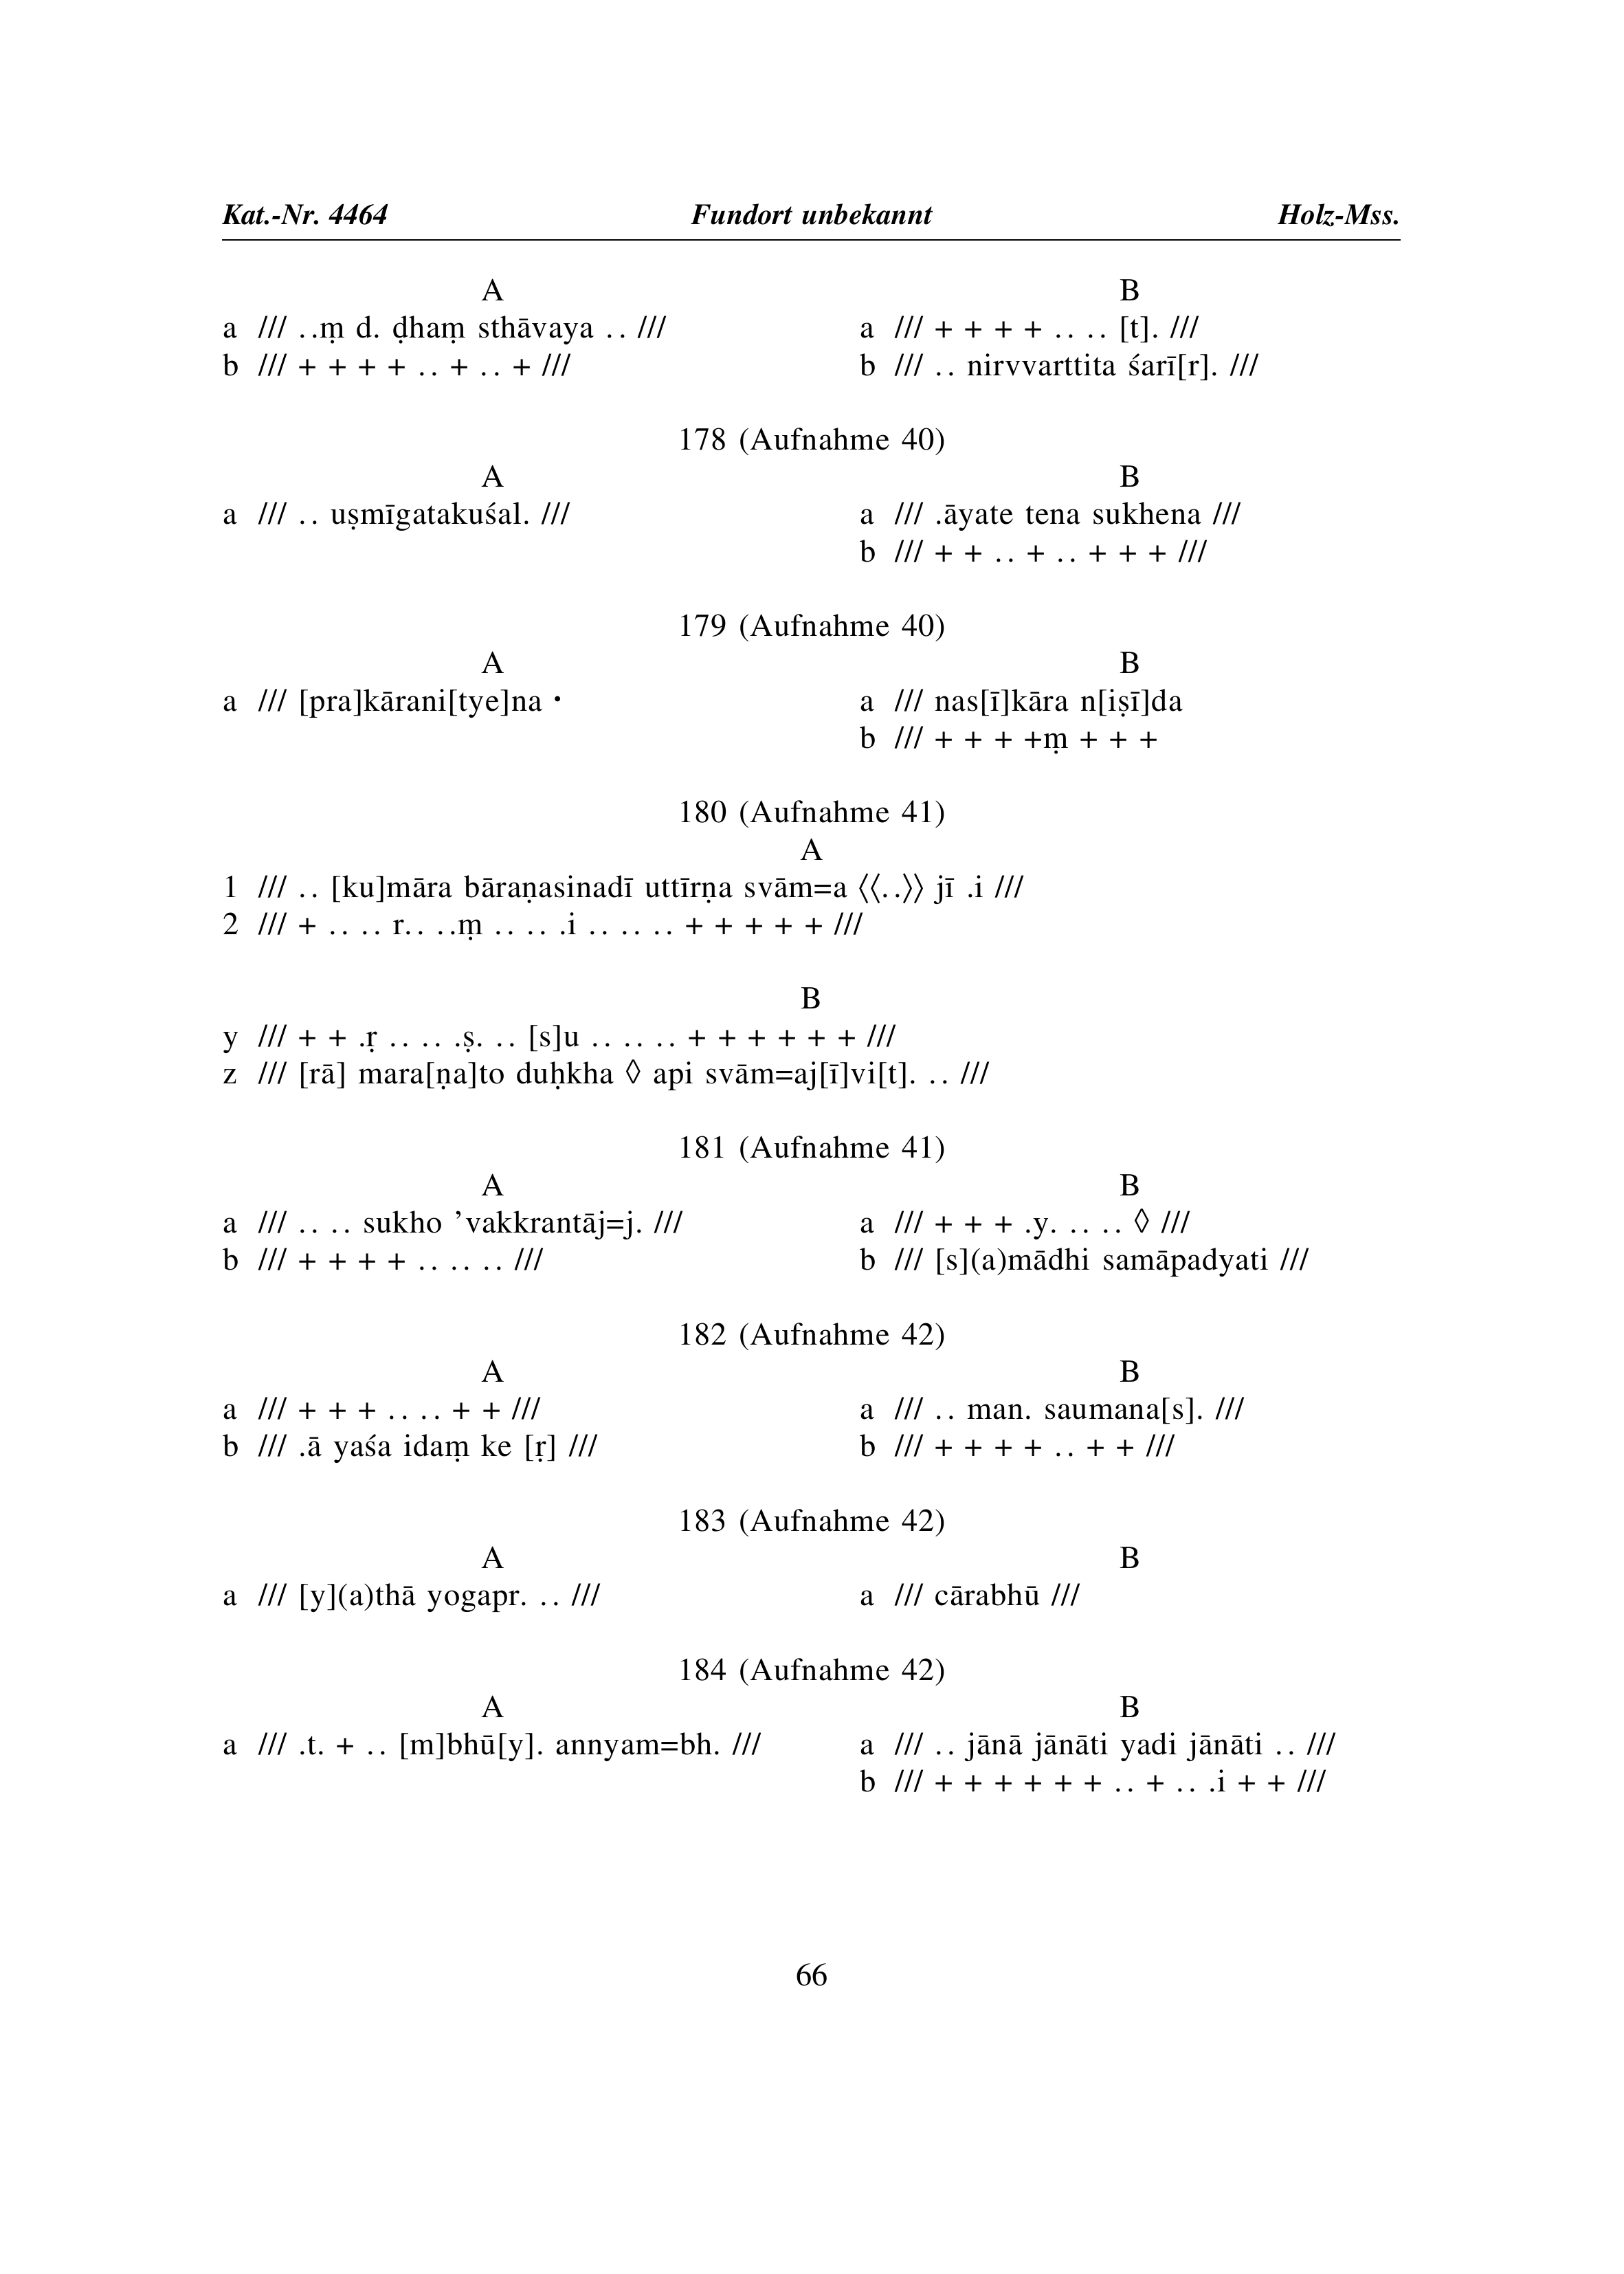 Kat.-Nr. 4464 Fundort unbekannt Holz-Mss.
A B
a /// . .ṃ d. ḍhaṃ sthāvaya . . /// a /// + + + + . . . . [t]. ///
b /// + + + + . . + . . + /// b /// . . nirvvarttita śarī[r]. ///
178 (Aufnahme 40)
A B
a /// . . uṣmīgatakuśal. /// a /// .āyate tena sukhena ///
b /// + + . . + . . + + + ///
179 (Aufnahme 40)
A B
a /// [pra]kārani[tye]na · a /// nas[ī]kāra n[iṣī]da
b /// + + + +ṃ + + +
180 (Aufnahme 41)
A
1 /// . . [ku]māra bāraṇasinadī uttīrṇa svām=a ⟨⟨. .⟩⟩ jī .i ///
2 /// + . . . . r. . . .ṃ . . . . .i . . . . . . + + + + + ///
B
y /// + + .ṛ . . . . .ṣ. . . [s]u . . . . . . + + + + + + ///
z /// [rā] mara[ṇa]to duḥkha ◊ api svām=aj[ī]vi[t]. . . ///
181 (Aufnahme 41)
A B
a /// . . . . sukho ’vakkrantāj=j. /// a /// + + + .y. . . . . ◊ ///
b /// + + + + . . . . . . /// b /// [s](a)mādhi samāpadyati ///
182 (Aufnahme 42)
A B
a /// + + + . . . . + + /// a /// . . man. saumana[s]. ///
b /// .ā yaśa idaṃ ke [ṛ] /// b /// + + + + . . + + ///
183 (Aufnahme 42)
A B
a /// [y](a)thā yogapr. . . /// a /// cārabhū ///
184 (Aufnahme 42)
A B
a /// .t. + . . [m]bhū[y]. annyam=bh. /// a /// . . jānā jānāti yadi jānāti . . ///
b /// + + + + + + . . + . . .i + + ///
66